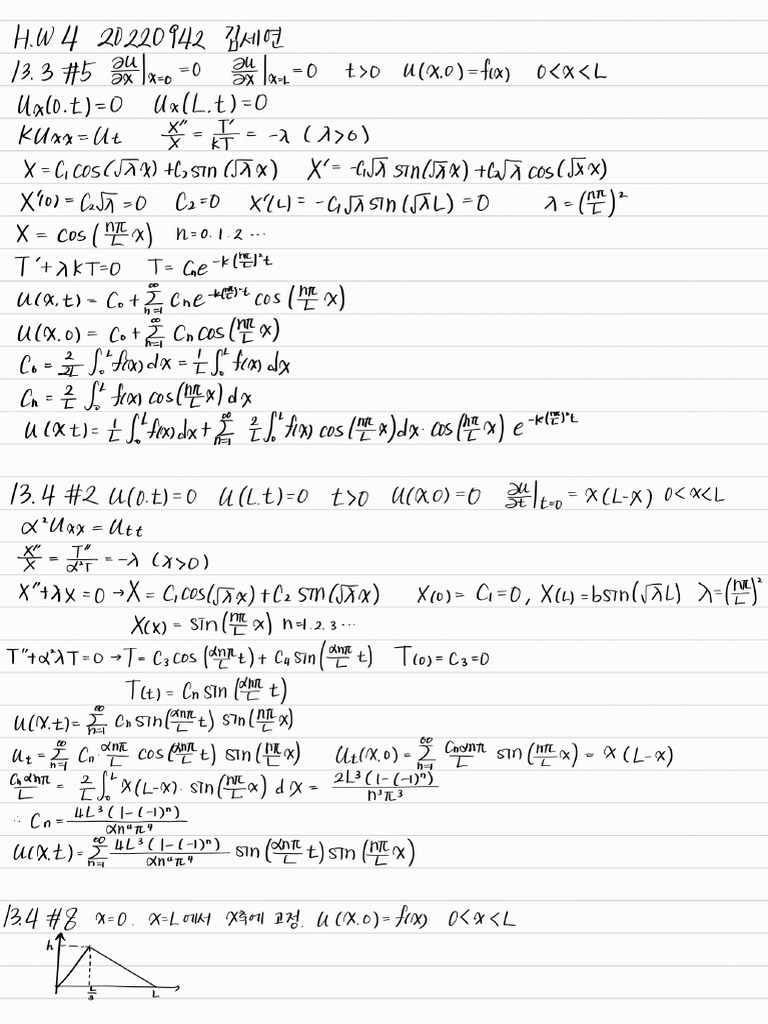 H.W 4 20220942 김세연
13.3 #5 ∂u/∂x|x=0 =0 ∂u/∂x|x=L =0 t>0 u(x.0)=f(x) 0<x<L
Ux(0.t)=0 Ux(L.t)=0
KUxx=Ut X''/X = T'/KT = -λ (λ>0)
X=C₁cos(√λx)+C₂sin(√λx) X'=-C₁√λ sin(√λx)+C₂√λ cos(√λx)
X'(0)=C₂√λ=0 C₂=0 X'(L)=-C₁√λ sin(√λL)=0 λ=(nπ/L)²
X = cos(nπ/L x) n=0.1.2 ⋯
T'+λKT=0 T=Cne^-k(nπ/L)²t
u(x,t)= C₀+∑(n=1,∞) Cne^-k(nπ/L)²t cos(nπ/L x)
u(x.0)= C₀+∑(n=1,∞) Cn cos(nπ/L x)
C₀= 2/2L ∫₀ᴸ f(x)dx = 1/L ∫₀ᴸ f(x)dx
Cn= 2/L ∫₀ᴸ f(x) cos(nπ/L x)dx
u(x t)= 1/L ∫₀ᴸ f(x)dx+∑(n=1,∞) 2/L ∫₀ᴸ f(x) cos(nπ/L x)dx· cos(nπ/L x) e^-k(nπ/L)²t
13.4 #2 u(0.t)=0 u(L.t)=0 t>0 u(x.0)=0 ∂u/∂t|t=0 = x(L-x) 0<x<L
α²Uxx=Utt
X''/X = T''/α²T = -λ (λ>0)
X''+λX=0 → X= C₁cos(√λx)+C₂ sin(√λx) X(0)= C₁=0, X(L)=bsin(√λL) λ=(nπ/L)²
X(x)= sin(nπ/L x) n=1.2.3 ⋯
T''+α²λT=0 → T= C₃cos(αnπ/L t)+ C₄sin(αnπ/L t) T(0)=C₃=0
T(t)= Cn sin(αnπ/L t)
u(x.t)=∑(n=1,∞) Cn sin(αnπ/L t) sin(nπ/L x)
ut=∑(n=1,∞) Cn αnπ/L cos(αnπ/L t) sin(nπ/L x) Ut(x.0)=∑(n=1,∞) Cnαnπ/L sin(nπ/L x)= x(L-x)
Cnαnπ/L = 2/L ∫₀ᴸ x(L-x)· sin(nπ/L x) dx = 2L³(1-(-1)ⁿ)/n³π³
∴ Cn= 4L³(1-(-1)ⁿ)/αn⁴π⁴
u(x.t)=∑(n=1,∞) 4L³(1-(-1)ⁿ)/αn⁴π⁴ sin(αnπ/L t) sin(nπ/L x)
13.4 #8 x=0. x=L에서 x축에 고정. u(x.0)=f(x) 0<x<L
h
L/3 L